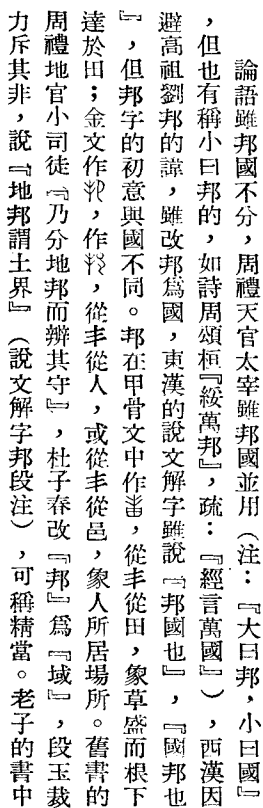 論語雖邦國不分，周禮天官太宰雖邦國並用（注：『大曰邦，小曰國』
，但也有稱小曰邦的，如詩周頌桓『綏萬邦』，疏：『經言萬國』），西漢因
避高祖劉邦的諱，雖改邦爲國，東漢的說文解字雖說『邦國也』，『國邦也
』，但邦字的初意與國不同。邦在甲骨文中作，從丰從田，象草盛而根下
達於田；金文作，作，從丰從人，或從丰從邑，象人所居場所。舊書的
周禮地官小司徒『乃分地邦而辨其守』，杜子春改『邦』爲『域』，段玉裁
力斥其非，說『地邦謂土界』（說文解字邦段注），可稱精當。老子的書中